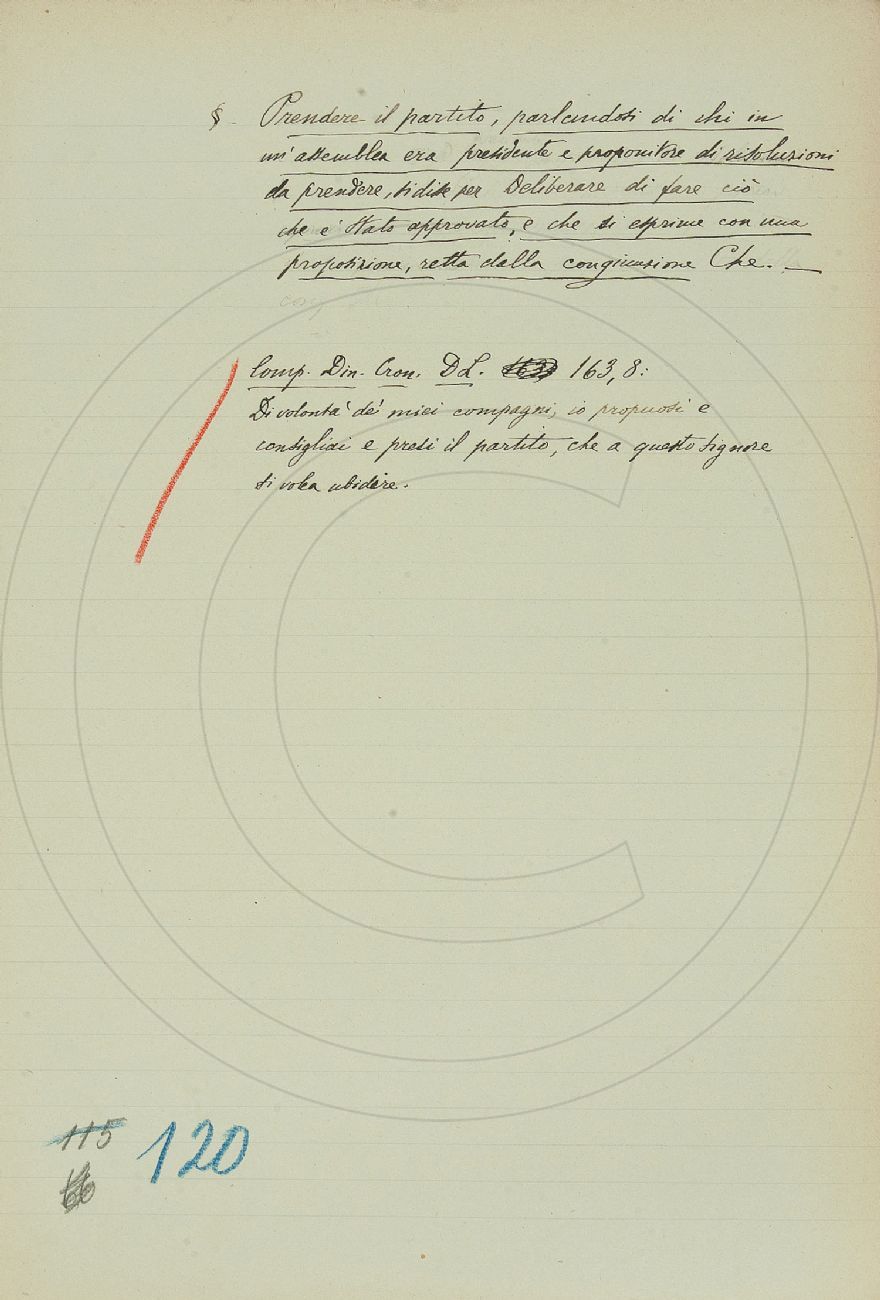 § Prendere il partito, parlandosi di chi in
un' assemblea era presidente e proponitore di risoluzioni
da prendere, si disse per Deliberare di fare ciò
che è stato approvato, e che si esprime con una
proposizione, retta dalla congiunzione Che. —
Comp. Din. Cron. DL. 163, 8:
Di volontà de' miei compagni, io proposi e
consigliai e presi il partito, che a questo signore
si volea ubidire.
115 120